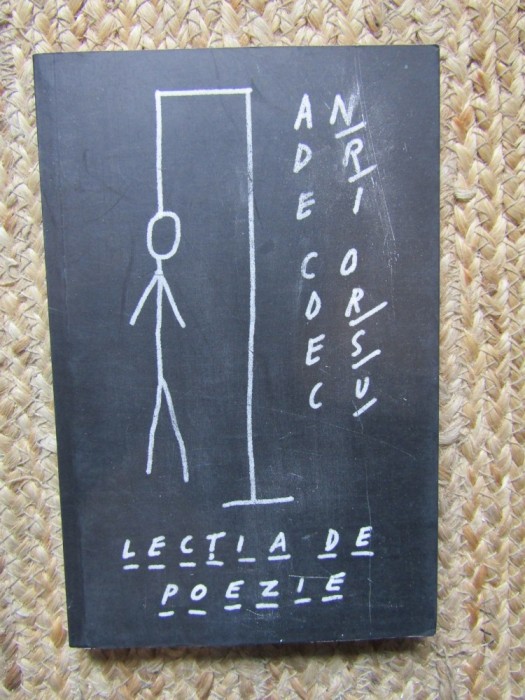 A N
D R
E I
C O
D R
E S
C U
LECȚIA DE
POEZIE